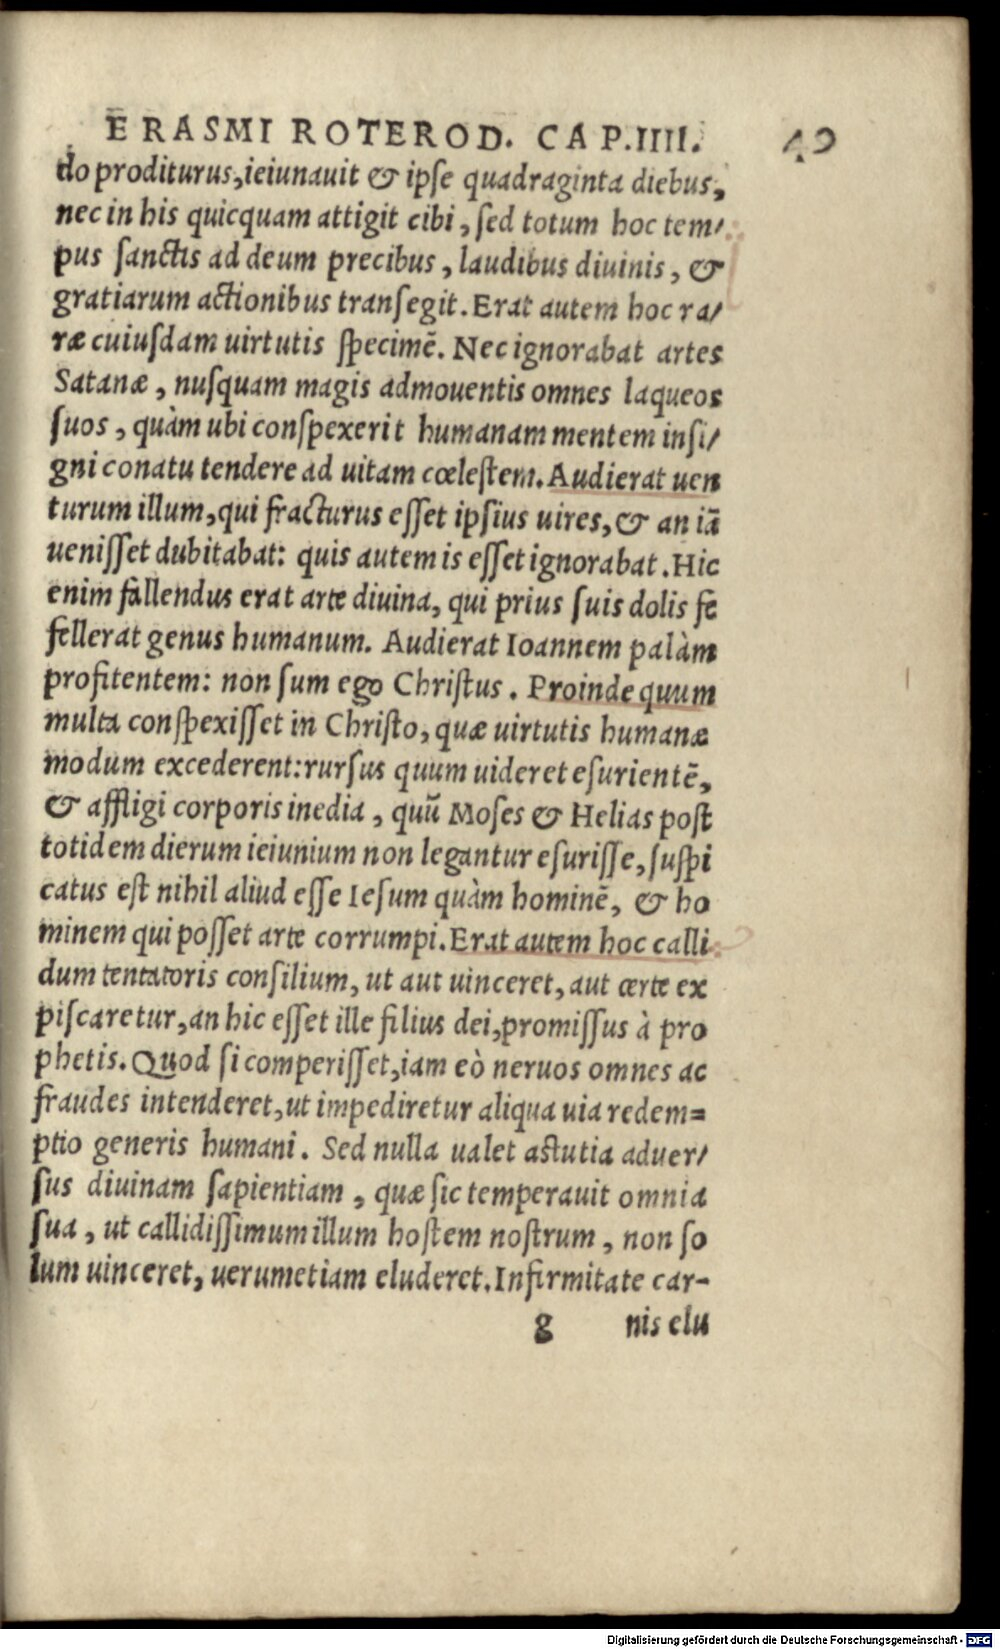 ERASMI ROTEROD. CAP.IIII. 49
do proditurus,ieiunauit & ipse quadraginta diebus,
nec in his quicquam attigit cibi, sed totum hoc tem/
pus sanctis ad deum precibus, laudibus diuinis, &
gratiarum actionibus transegit. Erat autem hoc ra/
ræ cuiusdam uirtutis specimẽ. Nec ignorabat artes
Satanæ, nusquam magis admouentis omnes laqueos
suos, quàm ubi conspexerit humanam mentem insi/
gni conatu tendere ad uitam cœlestem. Audierat uen
turum illum, qui fracturus esset ipsius uires, & an iã
uenisset dubitabat: quis autem is esset ignorabat. Hic
enim fallendus erat arte diuina, qui prius suis dolis fe
fellerat genus humanum. Audierat Ioannem palàm
profitentem: non sum ego Christus. Proinde quum
multa conspexisset in Christo, quæ uirtutis humanæ
modum excederent: rursus quum uideret esurientẽ,
& affligi corporis inedia, quũ Moses & Helias post
totidem dierum ieiunium non legantur esurisse, suspi
catus est nihil aliud esse Iesum quàm hominẽ, & ho
minem qui posset arte corrumpi. Erat autem hoc calli
dum tentatoris consilium, ut aut uinceret, aut certe ex
piscaretur, an hic esset ille filius dei, promissus à pro
phetis. Quod si comperisset, iam eò neruos omnes ac
fraudes intenderet, ut impediretur aliqua uia redem=
ptio generis humani. Sed nulla ualet astutia aduer/
sus diuinam sapientiam, quæ sic temperauit omnia
sua, ut callidissimum illum hostem nostrum, non so
lum uinceret, uerumetiam eluderet. Infirmitate car-
g nis elu
Digitalisierung gefördert durch die Deutsche Forschungsgemeinschaft - DFG